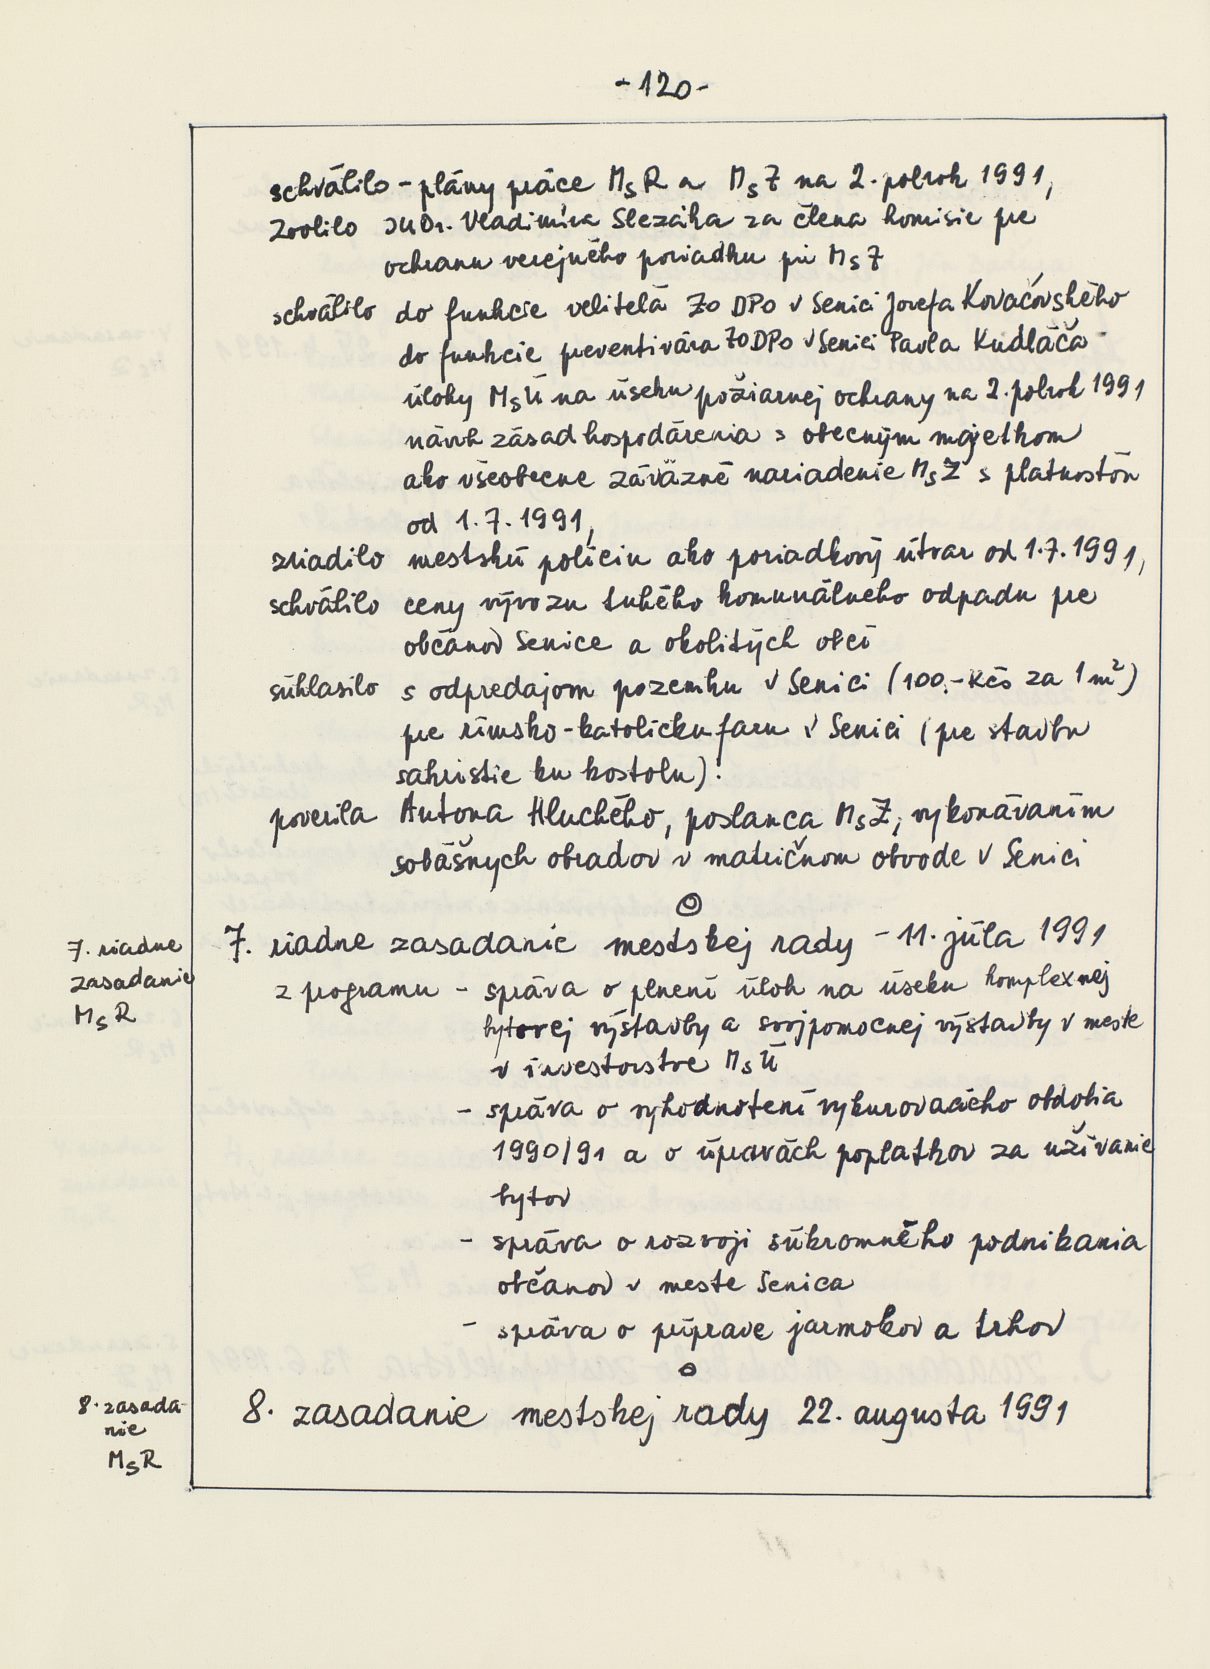 -120-
schválilo - plány práce MsR a MsZ na 2. polrok 1991,
Zvolilo JUDr. Vladimíra Slezáka za člena komisie pre
ochranu verejného poriadku pri MsZ
schválilo do funkcie veliteľa ZO DPO v Senici Jozefa Kovačovského
do funkcie preventivára ZO DPO v Senici Pavla Kudláča
úlohy MsÚ na úseku požiarnej ochrany na 2. polrok 1991
návrh zásad hospodárenia s obecným majetkom
ako všeobecne záväzné nariadenie MsZ s platnosťou
od 1.7.1991,
zriadilo mestskú políciu ako poriadkový útvar od 1.7.1991,
schválilo ceny vývozu tuhého komunálneho odpadu pre
občanov Senice a okolitých obcí
súhlasilo s odpredajom pozemku v Senici (100.-Kčs za 1 m²)
pre rímsko-katolícku faru v Senici (pre stavbu
sakristie ku kostolu).
poverila Antona Hluchého, poslanca MsZ, vykonávaním
sobášnych obradov v matričnom obvode v Senici
7. riadne zasadanie mestskej rady - 11. júla 1991
7. riadne
zasadanie
MsR
z programu - správa o plnení úloh na úseku komplexnej
bytovej výstavby a svojpomocnej výstavby v meste
v investorstve MsÚ
- správa o vyhodnotení vykurovacieho obdobia
1990/91 a o úpravách poplatkov za užívanie
bytov
- správa o rozvoji súkromného podnikania
občanov v meste Senica
- správa o príprave jarmokov a trhov
8. zasadanie mestskej rady 22. augusta 1991
8. zasada-
nie
MsR